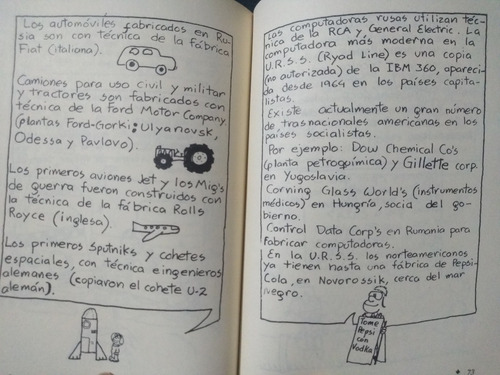 Los automóviles fabricados en Ru-
sia son con técnica de la fábrica
Fiat (italiana).
Camiones para uso civil y militar
y tractores son fabricados con
técnica de la Ford Motor Company
(plantas Ford-Gorki; Ulyanovsk,
Odessa y Pavlovo).
Los primeros aviones Jet y los Mig's
de guerra fueron construidos con
la técnica de la fábrica Rolls
Royce (inglesa).
Los primeros Sputniks y cohetes
espaciales, con técnica e ingenieros
alemanes (copiaron el cohete U-2
alemán).
Las computadoras rusas utilizan téc-
nica de la RCA y General Electric. La
computadora más moderna en la
U.R.S.S. (Ryad Line) es una copia
(no autorizada) de la IBM 360, apareci-
da desde 1964 en los países capita-
listas.
Existe actualmente un gran número
de, trasnacionales americanas en los
países socialistas.
Por ejemplo: Dow Chemical Co's
(planta petroquímica) y Gillette corp.
en Yugoslavia.
Corning Glass World's (instrumentos
médicos) en Hungría, socia del go-
bierno.
Control Data Corp's en Rumania para
fabricar computadoras.
En la U.R.S.S. los norteamericanos
ya tienen hasta una fábrica de Pepsi-
Cola, en Novorossik, cerca del mar
negro.
Tome
Pepsi
con
Vodka
73